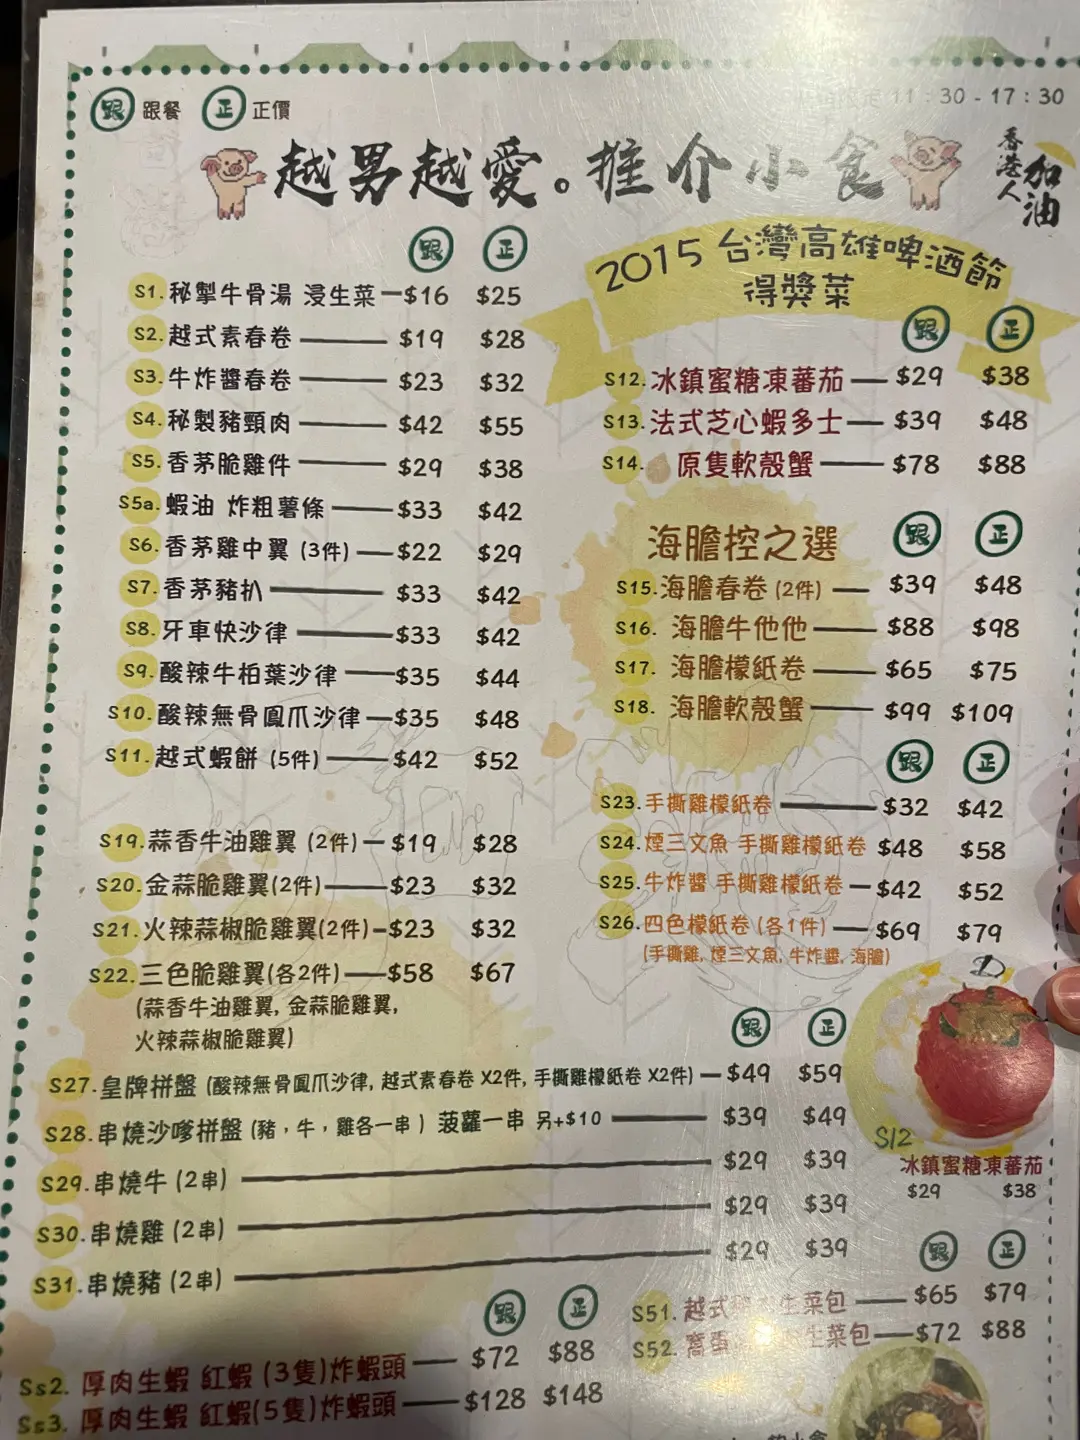 跟 跟餐 正 正價
11：30 - 17：30
越男越愛。推介小食
香港人
加油
跟 正
S1. 秘掣牛骨湯 浸生菜 $16 $25
S2. 越式素春卷 $19 $28
S3. 牛炸醬春卷 $23 $32
S4. 秘製豬頸肉 $42 $55
S5. 香茅脆雞件 $29 $38
S5a. 蝦油 炸粗薯條 $33 $42
S6. 香茅雞中翼 (3件) $22 $29
S7. 香茅豬扒 $33 $42
S8. 牙車快沙律 $33 $42
S9. 酸辣牛柏葉沙律 $35 $44
S10. 酸辣無骨鳳爪沙律 $35 $48
S11. 越式蝦餅 (5件) $42 $52
S19. 蒜香牛油雞翼 (2件) $19 $28
S20. 金蒜脆雞翼(2件) $23 $32
S21. 火辣蒜椒脆雞翼(2件) $23 $32
S22. 三色脆雞翼(各2件) $58 $67
(蒜香牛油雞翼, 金蒜脆雞翼,
火辣蒜椒脆雞翼)
2015 台灣高雄啤酒節
得獎菜
跟 正
S12. 冰鎮蜜糖凍蕃茄 $29 $38
S13. 法式芝心蝦多士 $39 $48
S14. 原隻軟殼蟹 $78 $88
海膽控之選 跟 正
S15. 海膽春卷 (2件) $39 $48
S16. 海膽牛他他 $88 $98
S17. 海膽檬紙卷 $65 $75
S18. 海膽軟殼蟹 $99 $109
跟 正
S23. 手撕雞檬紙卷 $32 $42
S24. 煙三文魚 手撕雞檬紙卷 $48 $58
S25. 牛炸醬 手撕雞檬紙卷 $42 $52
S26. 四色檬紙卷 (各1件) $69 $79
(手撕雞, 煙三文魚, 牛炸醬, 海膽)
跟 正
S27. 皇牌拼盤 (酸辣無骨鳳爪沙律, 越式素春卷 X2件, 手撕雞檬紙卷 X2件) $49 $59
S28. 串燒沙嗲拼盤 (豬，牛，雞各一串) 菠蘿一串 另+$10 $39 $49
S29. 串燒牛 (2串) $29 $39
S30. 串燒雞 (2串) $29 $39
S31. 串燒豬 (2串) $29 $39
S12
冰鎮蜜糖凍蕃茄
$29 $38
跟 正
Ss2. 厚肉生蝦 紅蝦 (3隻)炸蝦頭 $72 $88
Ss3. 厚肉生蝦 紅蝦(5隻)炸蝦頭 $128 $148
跟 正
S51. 越式 生菜包 $65 $79
S52. 窩蛋 生菜包 $72 $88
小食